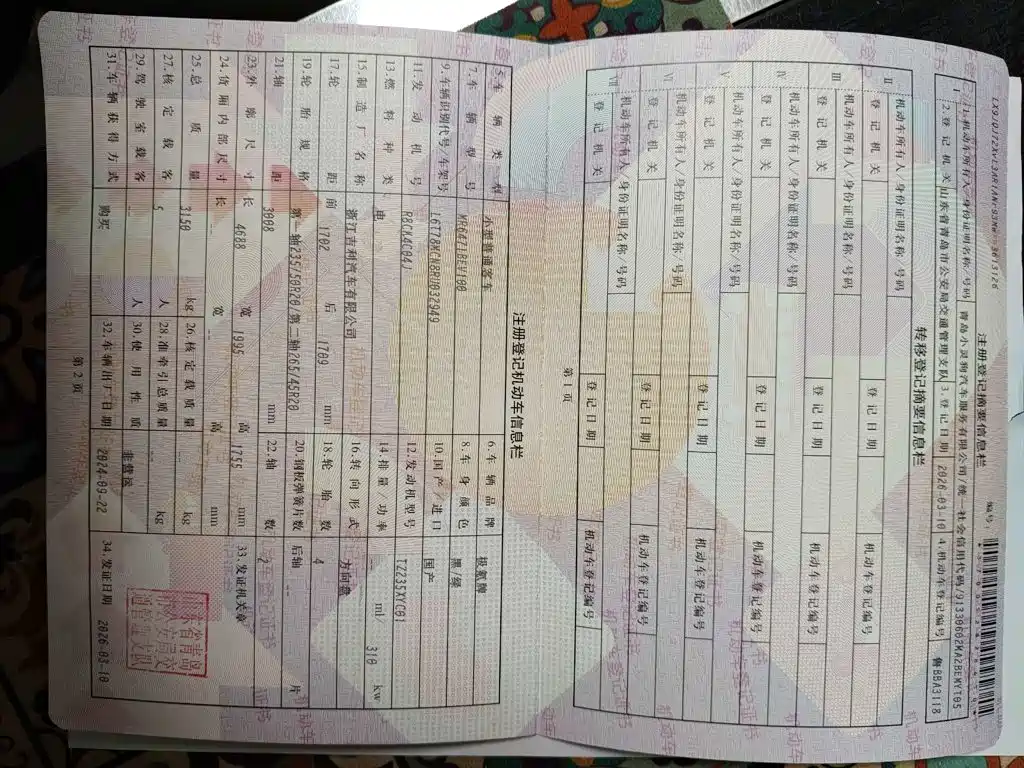 注册登记摘要信息栏
编号：
1.机动车所有人/身份证明名称/号码 青岛小灵狗汽车服务有限公司/统一社会信用代码/91330602MA2BEMYT05
I 2.登记机关 山东省青岛市公安局交通管理支队 3.登记日期 2026-03-10 4.机动车登记编号 鲁BBA3118
转移登记摘要信息栏
II 机动车所有人/身份证明名称/号码
登记机关 登记日期 机动车登记编号
III 机动车所有人/身份证明名称/号码
登记机关 登记日期 机动车登记编号
IV 机动车所有人/身份证明名称/号码
登记机关 登记日期 机动车登记编号
V 机动车所有人/身份证明名称/号码
登记机关 登记日期 机动车登记编号
VI 机动车所有人/身份证明名称/号码
登记机关 登记日期 机动车登记编号
VII 机动车所有人/身份证明名称/号码
登记机关 登记日期 机动车登记编号
第 1 页
注册登记机动车信息栏
5.车辆类型 小型普通客车 6.车辆品牌 极氪牌
7.车辆型号 8.车身颜色 黑/绿
9.车辆识别代号/车架号 10.国产/进口 国产
11.发动机号 R8CK4C04J 12.发动机型号 TZ235XYC01
13.燃料种类 电 14.排量/功率 ml/ 310 kw
15.制造厂名称 浙江吉利汽车有限公司 16.转向形式 方向盘
17.轮距 前 1702 后 1709 mm 18.轮胎数 4
19.轮胎规格 第一轴235/50R20/第二轴265/45R20 20.钢板弹簧片数 后轴 -- 片
21.轴距 3008 mm 22.轴数 2
23.外廓尺寸 长 4688 宽 1995 高 1755 mm 33.发证机关章
24.货厢内部尺寸 长 -- 宽 -- 高 -- mm
25.总质量 3150 kg 26.核定载质量 -- kg
27.核定载客 5 人 28.准牵引总质量 -- kg
29.驾驶室载客 -- 人 30.使用性质 非营运
31.车辆获得方式 购买 32.车辆出厂日期 2024-09-22 34.发证日期 2026-03-10
第 2 页